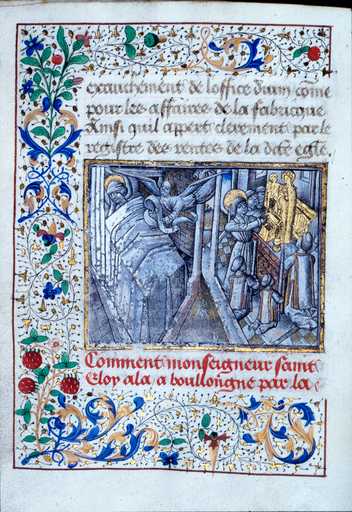 exauchement de loffice diuin come
pour les affaires de la fabricque
Ainsi quil appert clerement par le
registre des rentes de la dcte egle
Comment monseigneur saint
Eloy ala a boullongne par la